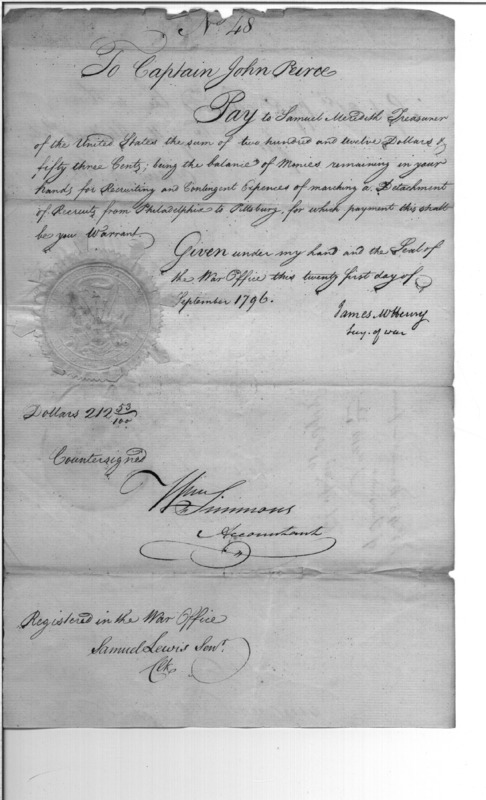 No 48
To Captain John Peirce
Pay to Samuel Meredith Treasurer
of the United States the sum of two hundred and twelve Dollars &
fifty three Cents; being the balance of Monies remaining in your
hands for Recruiting and Contingent Expences of marching a Detachment
of Recruits from Philadelphia to Pittsburg, for which payment this shall
be your Warrant
Given under my hand and the Seal of
the War Office this twenty first day of
September 1796.
James McHenry
Secy. of war
Dollars 212 53/100
Countersigned
Wm Simmons
Accountant
Registered in the War Office
Samuel Lewis Senr.
Clk